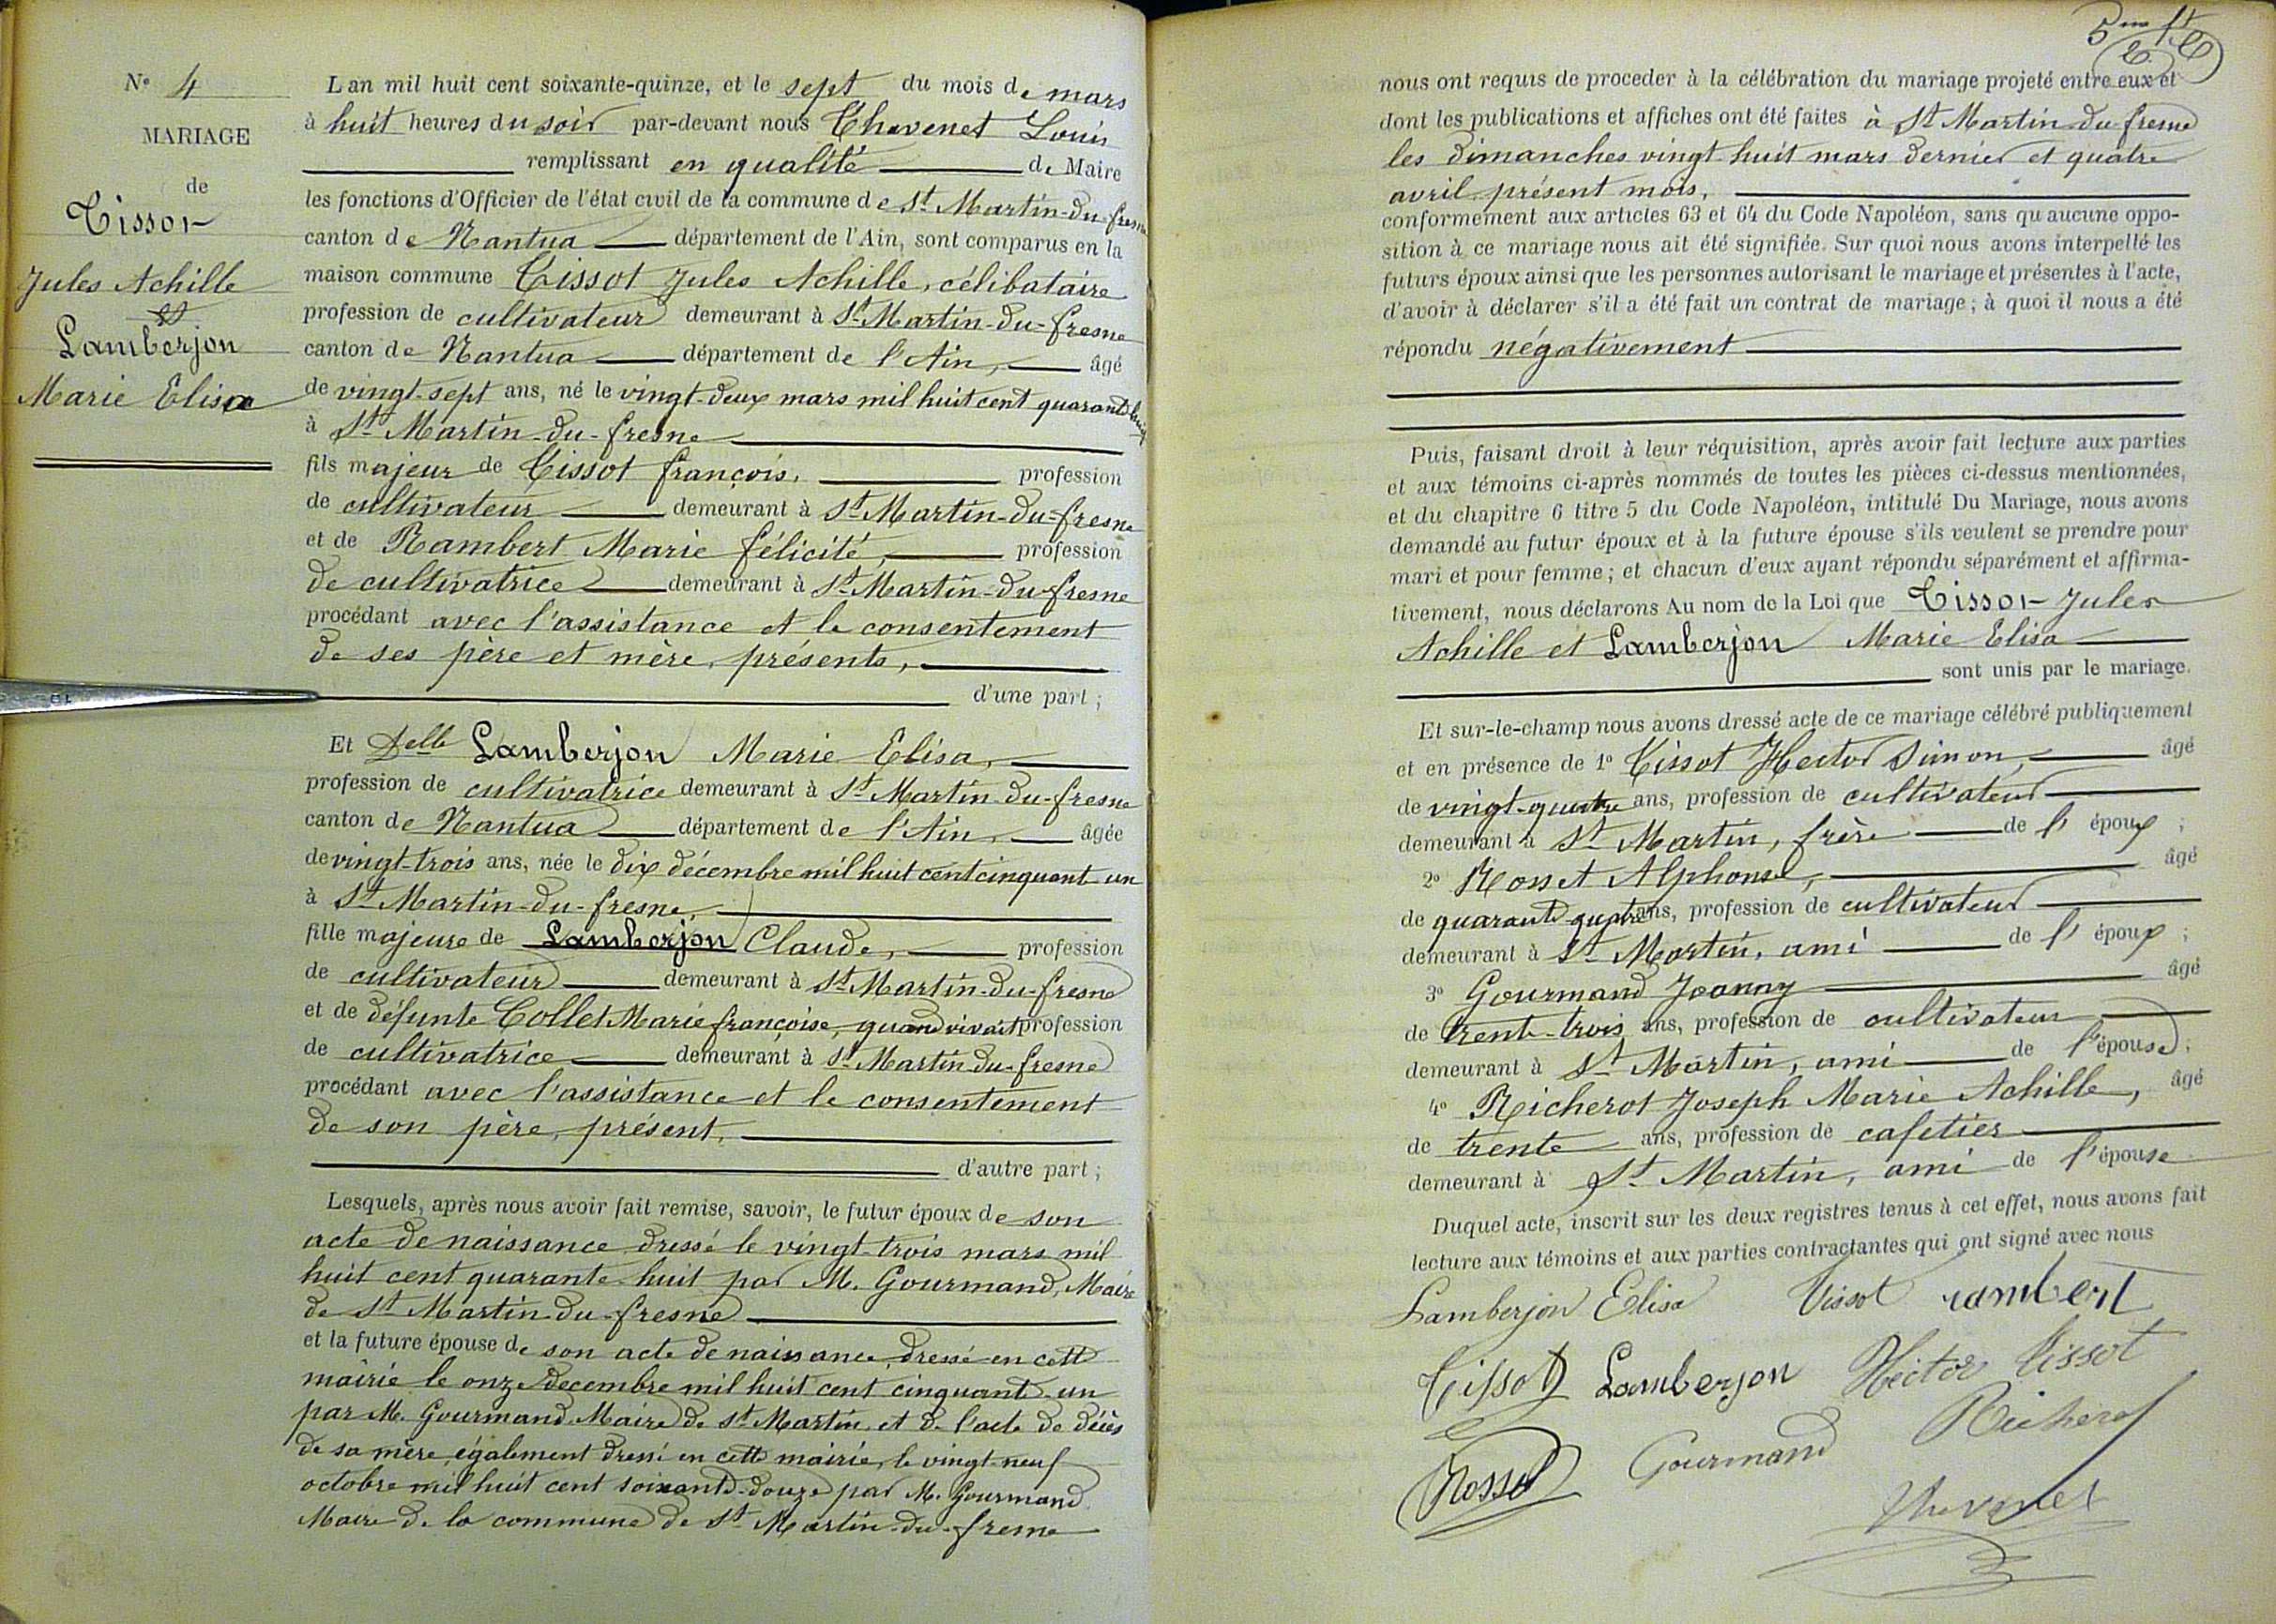 Nº 4
MARIAGE
de
Tissot
Jules Achille
et
Lamberjon
Marie Elisa
L an mil huit cent soixante-quinze, et le sept du mois de mars
à huit heures du soir par-devant nous Chavenet Louis
remplissant en qualité de Maire
les fonctions d'Officier de l'état civil de la commune de St Martin-du-fresne
canton de Nantua département de l'Ain, sont comparus en la
maison commune Tissot Jules Achille, célibataire
profession de cultivateur demeurant à St Martin-du-fresne
canton de Nantua département de l'Ain, âgé
de vingt-sept ans, né le vingt-deux mars mil huit cent quarante huit
à St Martin-du-fresne
fils majeur de Tissot françois, profession
de cultivateur demeurant à St Martin-du-fresne
et de Rambert Marie félicité, profession
de cultivatrice demeurant à St Martin-du-fresne
procédant avec l'assistance et le consentement
de ses père et mère, présents,
d'une part ;
Et Delle Lamberjon Marie Elisa,
profession de cultivatrice demeurant à St Martin-du-fresne
canton de Nantua département de l'Ain, âgée
de vingt-trois ans, née le dix décembre mil huit cent cinquant-un
à St Martin-du-fresne,
fille majeure de Lamberjon Claude, profession
de cultivateur demeurant à St Martin-du-fresne
et de défunte Collet Marie françoise, quand vivait profession
de cultivatrice demeurant à St Martin-du-fresne
procédant avec l'assistance et le consentement
de son père, présent,
d'autre part ;
Lesquels, après nous avoir fait remise, savoir, le futur époux de son
acte de naissance dressé le vingt-trois mars mil
huit cent quarante-huit par M. Gourmand, Maire
de St Martin-du-fresne
et la future épouse de son acte de naissance dressé en cette
mairie le onze décembre mil huit cent cinquante-un
par M. Gourmand Maire de St Martin, et de l'acte de décès
de sa mère, également dressé en cette mairie, le vingt-neuf
octobre mil huit cent soixante-douze par M. Gourmand
Maire de la commune de St Martin-du-fresne
nous ont requis de proceder à la célébration du mariage projeté entre eux et
dont les publications et affiches ont été faites à St Martin-du-fresne
les dimanches vingt-huit mars dernier et quatre
avril présent mois,
conformément aux articles 63 et 64 du Code Napoléon, sans qu aucune oppo-
sition à ce mariage nous ait été signifiée. Sur quoi nous avons interpellé les
futurs époux ainsi que les personnes autorisant le mariage et présentes à l'acte,
d'avoir à déclarer s'il a été fait un contrat de mariage ; à quoi il nous a été
répondu négativement
Puis, faisant droit à leur réquisition, après avoir fait lecture aux parties
et aux témoins ci-après nommés de toutes les pièces ci-dessus mentionnées,
et du chapitre 6 titre 5 du Code Napoléon, intitulé Du Mariage, nous avons
demandé au futur époux et à la future épouse s'ils veulent se prendre pour
mari et pour femme ; et chacun d'eux ayant répondu séparément et affirma-
tivement, nous déclarons Au nom de la Loi que Tissot Jules
Achille et Lamberjon Marie Elisa
sont unis par le mariage.
Et sur-le-champ nous avons dressé acte de ce mariage célébré publiquement
et en présence de 1º Tissot Hector Simon, âgé
de vingt-quatre ans, profession de cultivateur
demeurant à St Martin, frère de l' époux ;
2º Rosset Alphonse, âgé
de quarante quatre ans, profession de cultivateur
demeurant à St Martin, ami de l' époux ;
3º Gourmand Joanny âgé
de trente-trois ans, profession de cultivateur
demeurant à St Martin, ami de l'épouse ;
4º Richerot Joseph Marie Achille, âgé
de trente ans, profession de cafetier
demeurant à St Martin, ami de l'épouse
Duquel acte, inscrit sur les deux registres tenus à cet effet, nous avons fait
lecture aux témoins et aux parties contractantes qui ont signé avec nous
Lamberjon Elisa Tissot rambert
Tissot Lamberjon Hector tissot
Rosset Gourmand Richerot
Chavenet